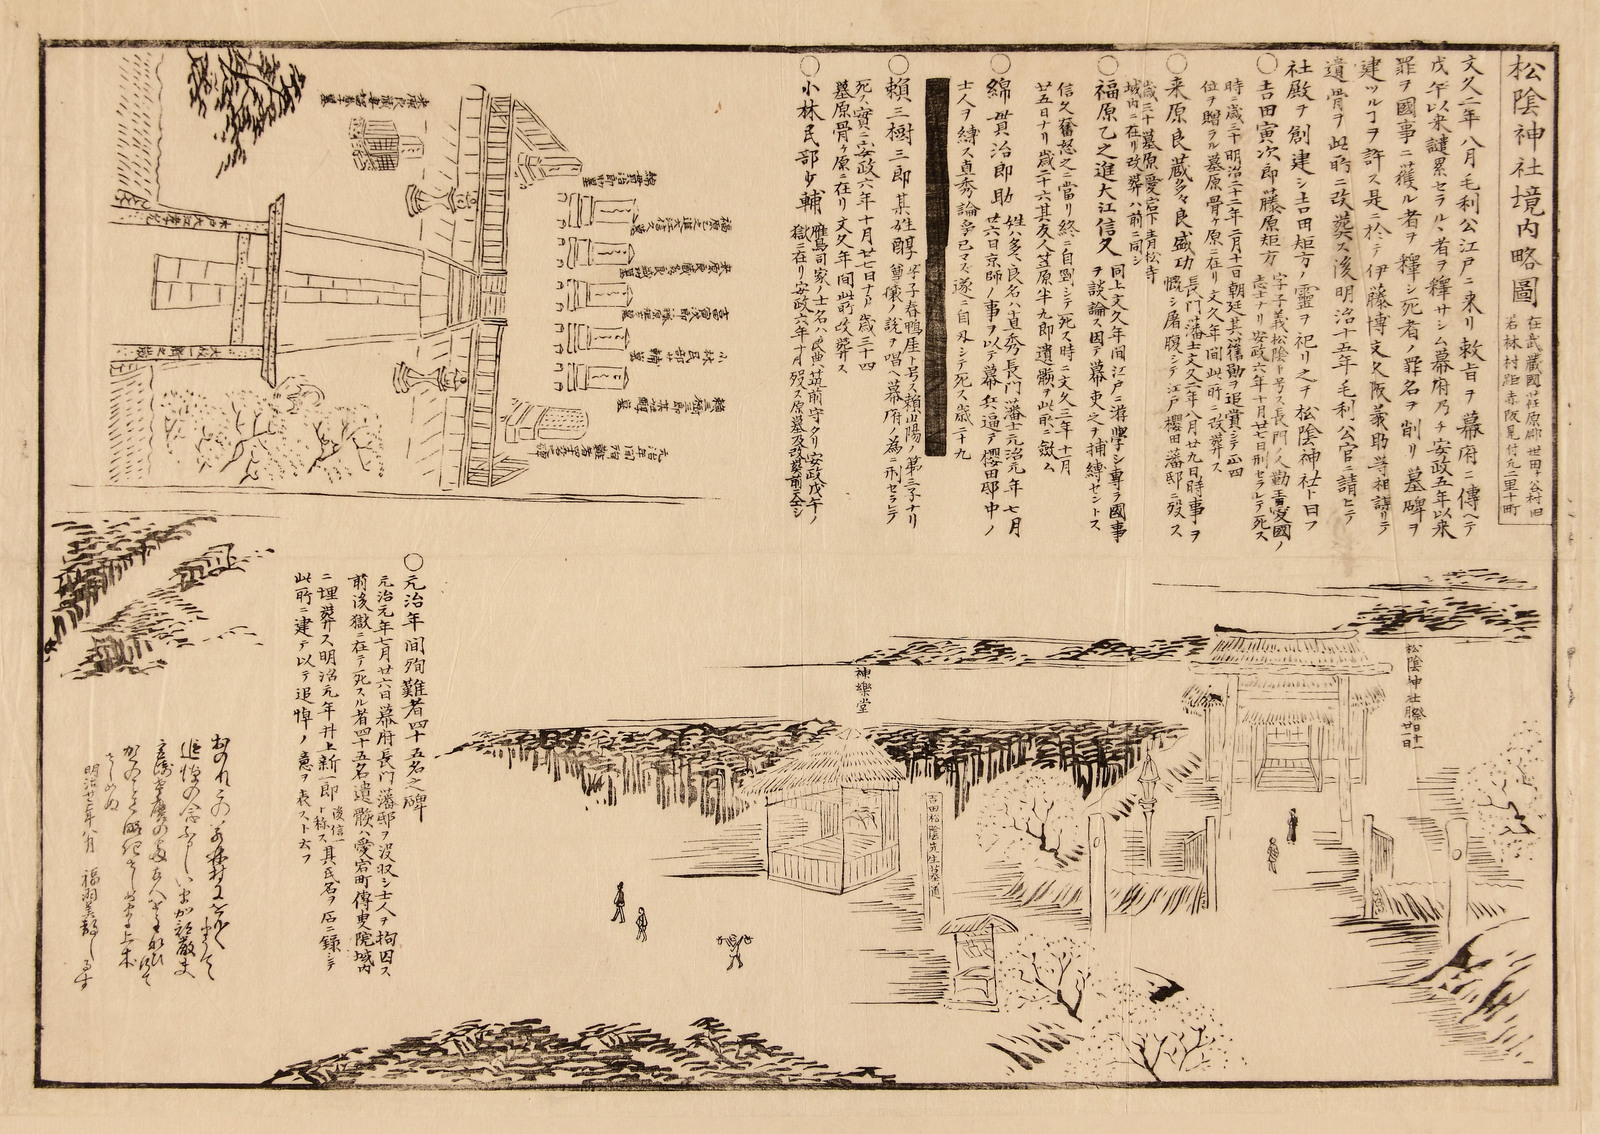 松陰神社境内略圖
在武蔵國荏原郡世田ヶ谷村旧
若林村距赤阪見付凡二里十町
文久二年八月毛利公江戸ニ来リ敕旨ヲ幕府ニ傳ヘテ
戊午以来譴累セラルヽ者ヲ釋サシム幕府乃チ安政五年以来
罪ヲ國事ニ獲ル者ヲ釋シ死者ノ罪名ヲ削リ墓碑ヲ
建ツルヿヲ許ス是ニ於テ伊藤博文久阪義助等相謀リテ
遺骨ヲ此所ニ改葬ス後明治十五年毛利公官ニ請ヒテ
社殿ヲ創建シ吉田矩方ノ靈ヲ祀リ之ヲ松陰神社ト曰フ
○吉田寅次郎藤原矩方
字子義松陰ト号ス長門ノ人勤王愛國ノ
志士ナリ安政六年十月廿七日刑セラレテ死ス
時ニ歳三十明治二十二年二月十一日朝廷其舊勳ヲ追賞シテ正四
位ヲ贈ラル墓原骨ヶ原ニ在リ文久年間此所ニ改葬ス
○来原良蔵多々良盛功
長門藩士文久二年八月廿九日時事ヲ
慨シ屠腹シテ江戸櫻田藩邸ニ歿ス
歳三十墓原愛宕下青松寺
域内ニ在リ改葬ハ前ニ同シ
○福原乙之進大江信久
同上文久年間江戸ニ游學シ専ラ國事
ヲ談論ス因テ幕吏之ヲ捕縛セントス
信久奮怒之ニ當リ終ニ自剄シテ死ス時ニ文久三年十一月
廿五日ナリ歳二十六其友人笠原半九郎遺骸ヲ此所ニ斂ム
○綿貫治郎助
姓ハ多々良名ハ直秀長門藩士元治元年七月
廿六日京師ノ事ヲ以テ幕兵逼テ櫻田邸中ノ
士人ヲ縛ス直秀論争已マス遂ニ自刃シテ死ス歳二十九
○頼三樹三郎某姓醇
字子春鴨厓ト号ス頼山陽ノ第三子ナリ
尊攘ノ説ヲ唱ヘ幕府ノ為ニ刑セラレテ
死ス實ニ安政六年十月廿七日ナリ歳三十四
墓原骨ヶ原ニ在リ文久年間此所改葬ス
○小林民部少輔
鷹司家ノ士名ハ良典筑前守タリ安政戊午ノ
獄ニ在リ安政六年十月歿ス原墓及改葬前仝シ
来原良蔵妻春子墓
綿貫治郎助墓
福原乙之進大江信久墓
来原良蔵多々良盛功墓
吉田寅次郎藤原矩方墓
小林民部少輔墓
頼三樹三郎某姓醇墓
木戸大江孝允
大政一新之歳
○元治年間殉難者四十五名之碑
元治元年七月廿六日幕府長門藩邸ヲ没収シ士人ヲ拘囚ス
前後獄ニ在テ死スル者四十五名遺骸ハ愛宕町傳叟院域内
ニ埋葬ス明治元年井上新一郎
後信一
ト称ス
其氏名ヲ石ニ録シテ
此所ニ建テ以テ追悼ノ意ヲ表スト云フ
神樂堂
松陰神社
吉田松陰先生墓道
明治廿二年八月 福羽美静しるす